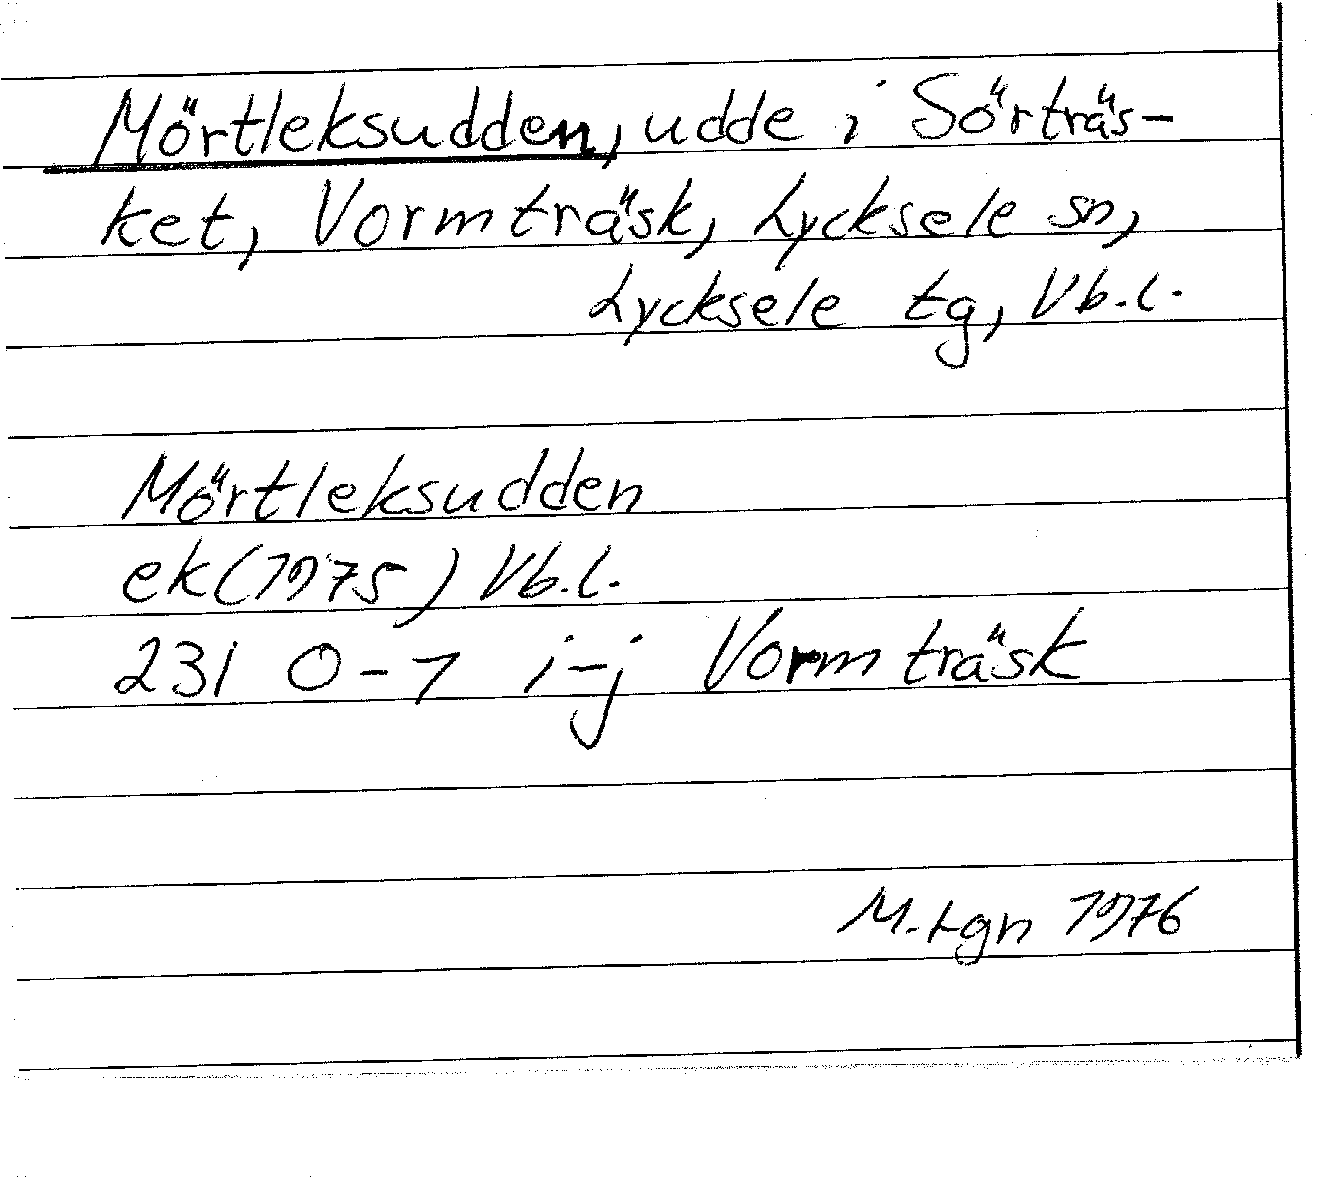 Mörtleksudden, udde i Sörträs-
ket, Vormträsk, Lycksele sn,
Lycksele tg, Vb.l.
Mörtleksudden
ek(1975) Vb.l.
231 0-1 i-j Vormträsk
M.tgn 1976